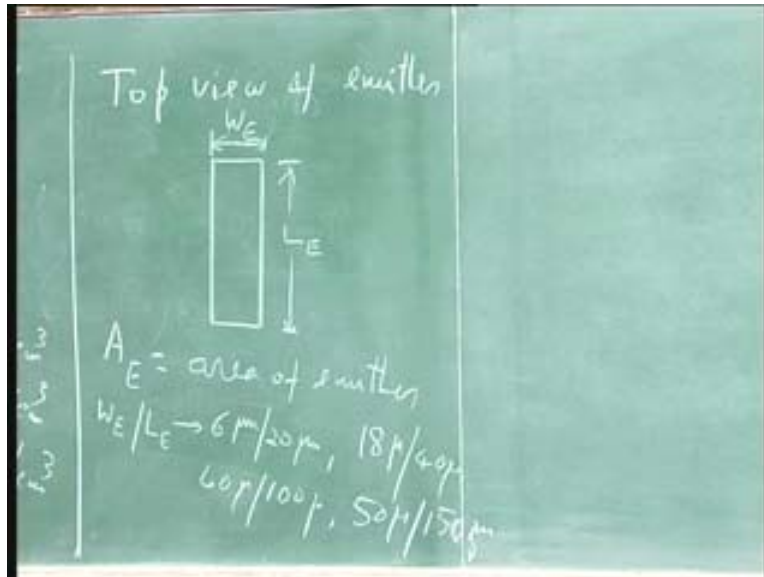 Top view of emitter
W_E
L_E
A_E = area of emitter
W_E/L_E → 6 μm/20 μm, 18μ/40μ
60μ/100μ, 50μ/150μm